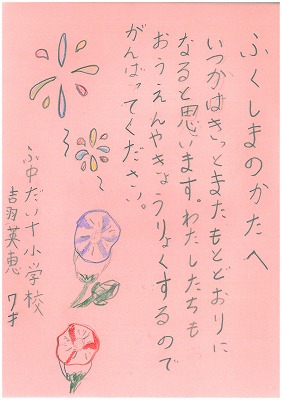 ふくしまのかたへ
いつかはきっとまたもとどおりに
なると思います。わたしたちも
おうえんやきょうりょくするので
がんばってください。
ふ中だい十小学校
吉羽英恵 7才